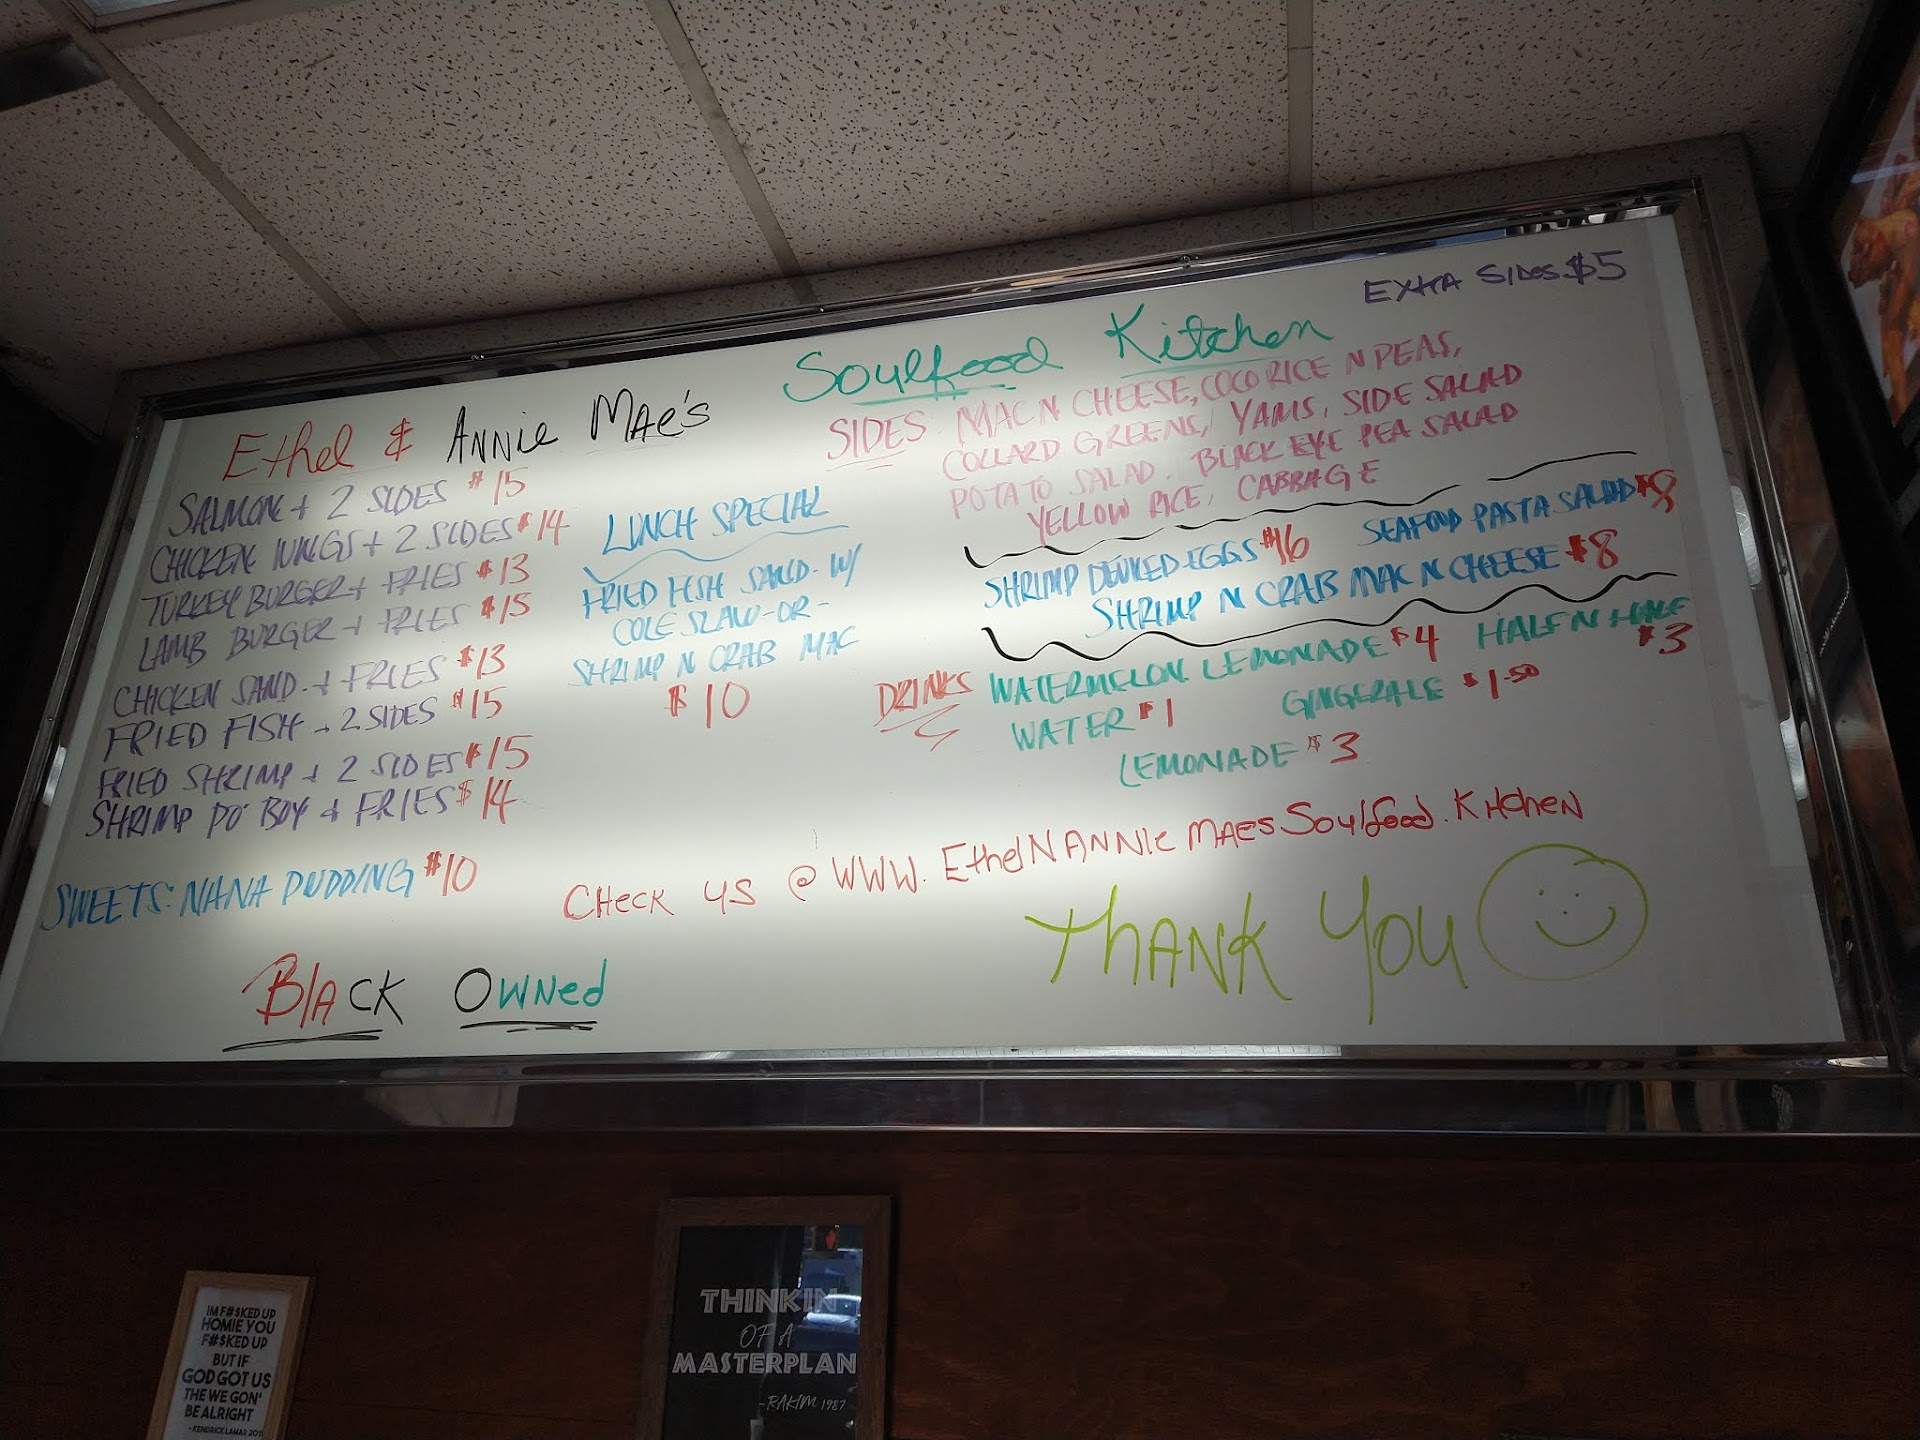 Ethel & Annie Mae's Soulfood Kitchen
EXTRA SIDES $5
SALMON + 2 SIDES $15
CHICKEN WINGS + 2 SIDES $14
TURKEY BURGER + FRIES $13
LAMB BURGER + FRIES $15
CHICKEN SAND. + FRIES $13
FRIED FISH + 2 SIDES $15
FRIED SHRIMP + 2 SIDES $15
SHRIMP PO' BOY + FRIES $14
SWEETS: NANA PUDDING $10
LUNCH SPECIAL
FRIED FISH SAND. W/
COLE SLAW -OR-
SHRIMP N CRAB MAC
$10
SIDES: MAC N CHEESE, COCO RICE N PEAS,
COLLARD GREENS, YAMS, SIDE SALAD
POTATO SALAD. BLACK EYE PEA SALAD
YELLOW RICE, CABBAGE
SHRIMP DEVILED EGGS $16 SEAFOOD PASTA SALAD $8
SHRIMP N CRAB MAC N CHEESE $8
DRINKS WATERMELON LEMONADE $4 HALF N HALF $3
WATER $1 GINGERALE $1.50
LEMONADE $3
CHECK US @ WWW.EthelNANNIEMAESSoulfood.Kitchen
BLACK OWNED
THANK YOU
IM F#$KED UP
HOMIE YOU
F#$KED UP
BUT IF
GOD GOT US
THE WE GON'
BE ALRIGHT
- KENDRICK LAMAR
THINKIN
OF A
MASTERPLAN
-RAKIM 1987